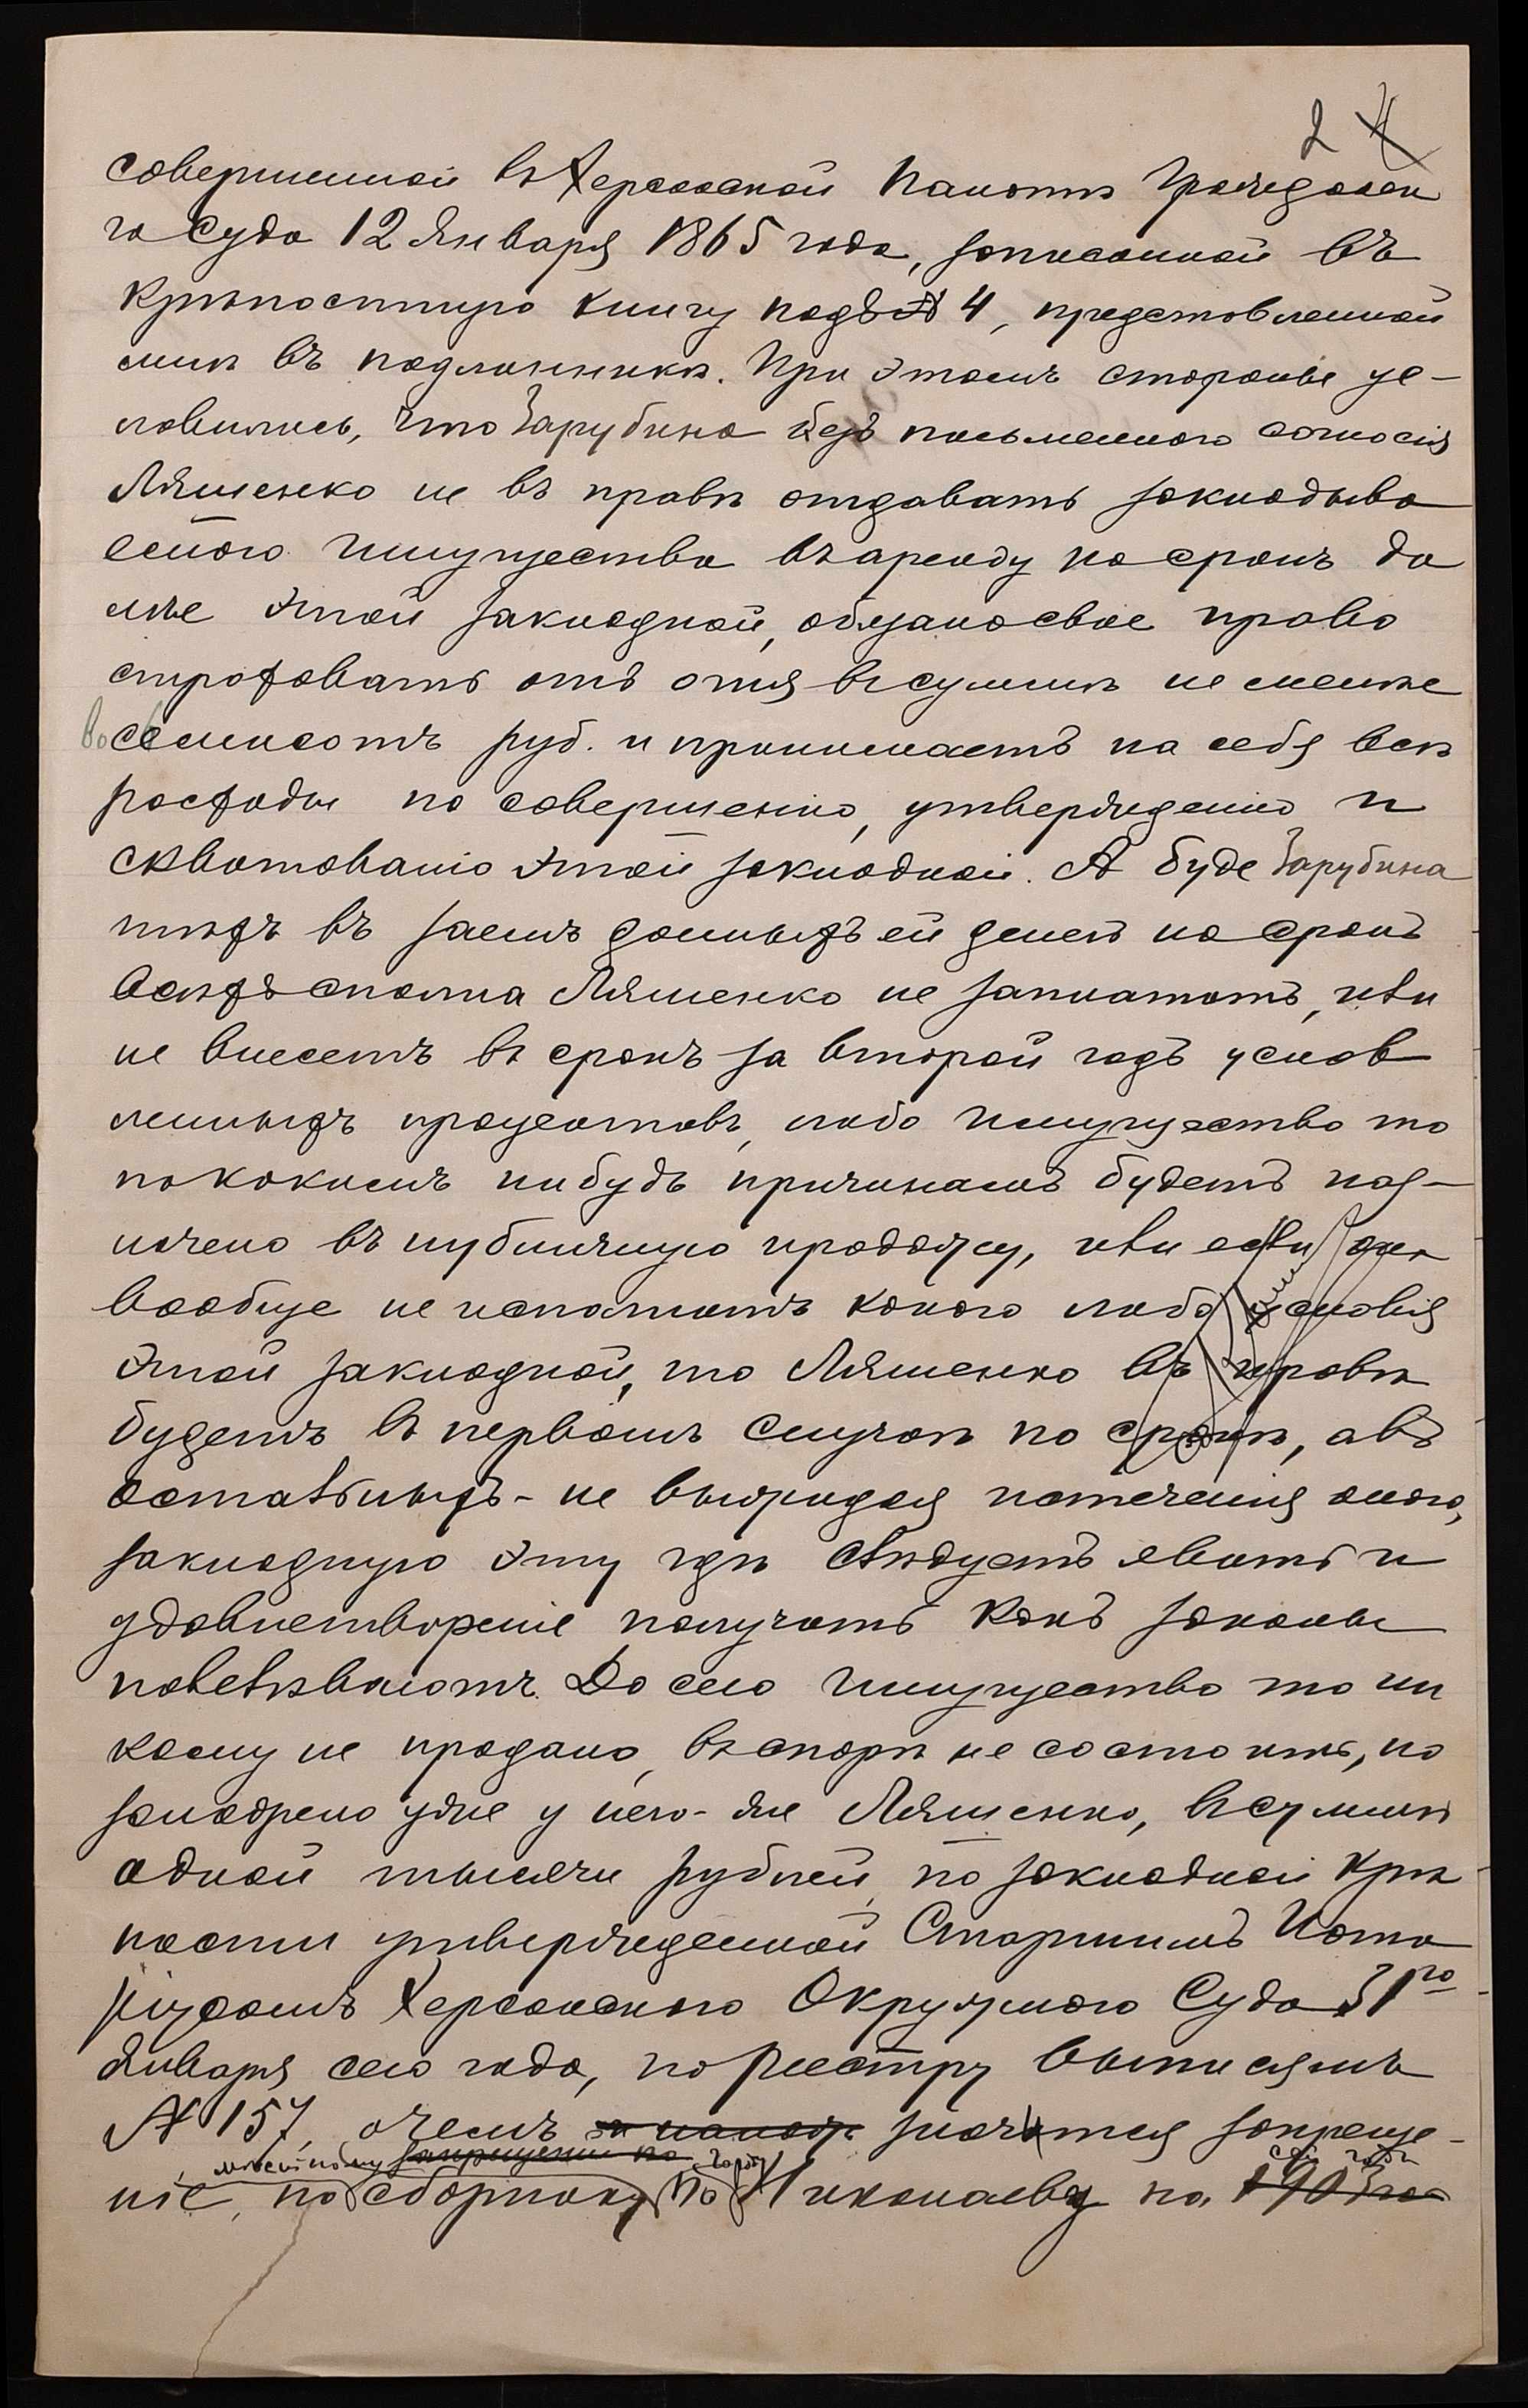 2 4
совершенной въ Херсонской Палатѣ Гражданска
го Суда 12 Января 1865 года, записанной въ
крѣпостную книгу подъ № 4, представленной
мнѣ въ подлинникѣ. При этомъ стороны ус-
ловились, что Зарубина безъ письменнаго согласія
Ляшенко не въ правѣ отдавать закладыва
емаго имущества въ аренду на срокъ да
лѣе этой закладной, обязана свое право
страховать отъ огня въ суммѣ не менѣе
семисотъ руб. и принимаетъ на себя всѣ
расходы по совершенію, утвержденію и
сквитованію этой закладной. А буде Зарубина
тѣхъ въ заемъ данныхъ ей денегъ на срокъ
всѣхъ сполна Ляшенко не заплатитъ, или
не внесетъ въ срокъ за второй годъ услов
ленныхъ процентовъ, либо имущество то
по какимъ нибудь причинамъ будетъ наз-
начено въ публичную продажу, или если она
вообще не исполнитъ какого либо условія
этой закладной, то Ляшенко въ правѣ
будетъ въ первомъ случаѣ по срокѣ, а въ
остальныхъ - не выжидая истеченія онаго,
закладную эту гдѣ слѣдуетъ явить и
удовлетвореніе получить какъ законы
повелѣваютъ. До сего имущество то ни
кому не продано, въ спорѣ не состоитъ, но
заложено уже у него-же Ляшенко, въ суммѣ
одной тысячи рублей, по закладной крѣ
пости утвержденной Старшимъ Нота
ріусомъ Херсонскаго Окружнаго Суда 31го
Января сего года, по реестру выписямъ
№ 157, о чемъ значится запреще-
мѣстному запрещеній на городу сей годъ
ніе, по сборнику по Николаеву на 1903 го